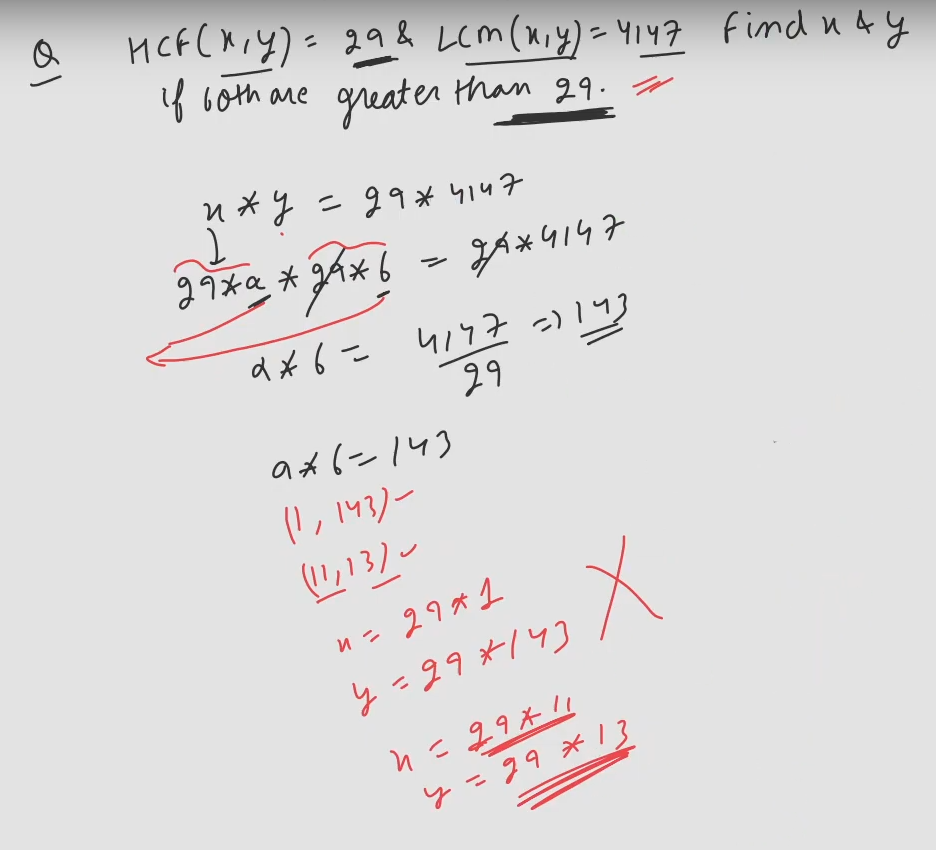 Q HCF(x,y) = 29 & LCM(x,y) = 4147 Find x & y
if both are greater than 29.
x * y = 29 * 4147
29*a * 29*b = 29*4147
a*b = 4147/29 => 143
a*b = 143
(1, 143)
(11,13) ✓
x = 29*1
y = 29*143
x = 29*11
y = 29*13